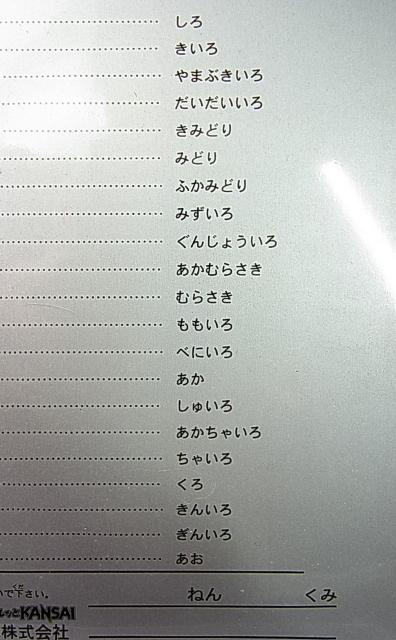 しろ
きいろ
やまぶきいろ
だいだいいろ
きみどり
みどり
ふかみどり
みずいろ
ぐんじょういろ
あかむらさき
むらさき
ももいろ
べにいろ
あか
しゅいろ
あかちゃいろ
ちゃいろ
くろ
きんいろ
ぎんいろ
あお
で下さい。
ねん くみ
KANSAI
株式会社